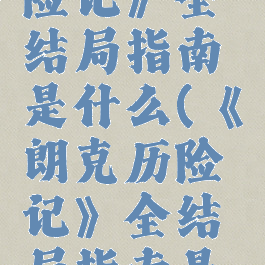 险记》全
结局指南
是什么(《
朗克历险
记》全结
局指南是